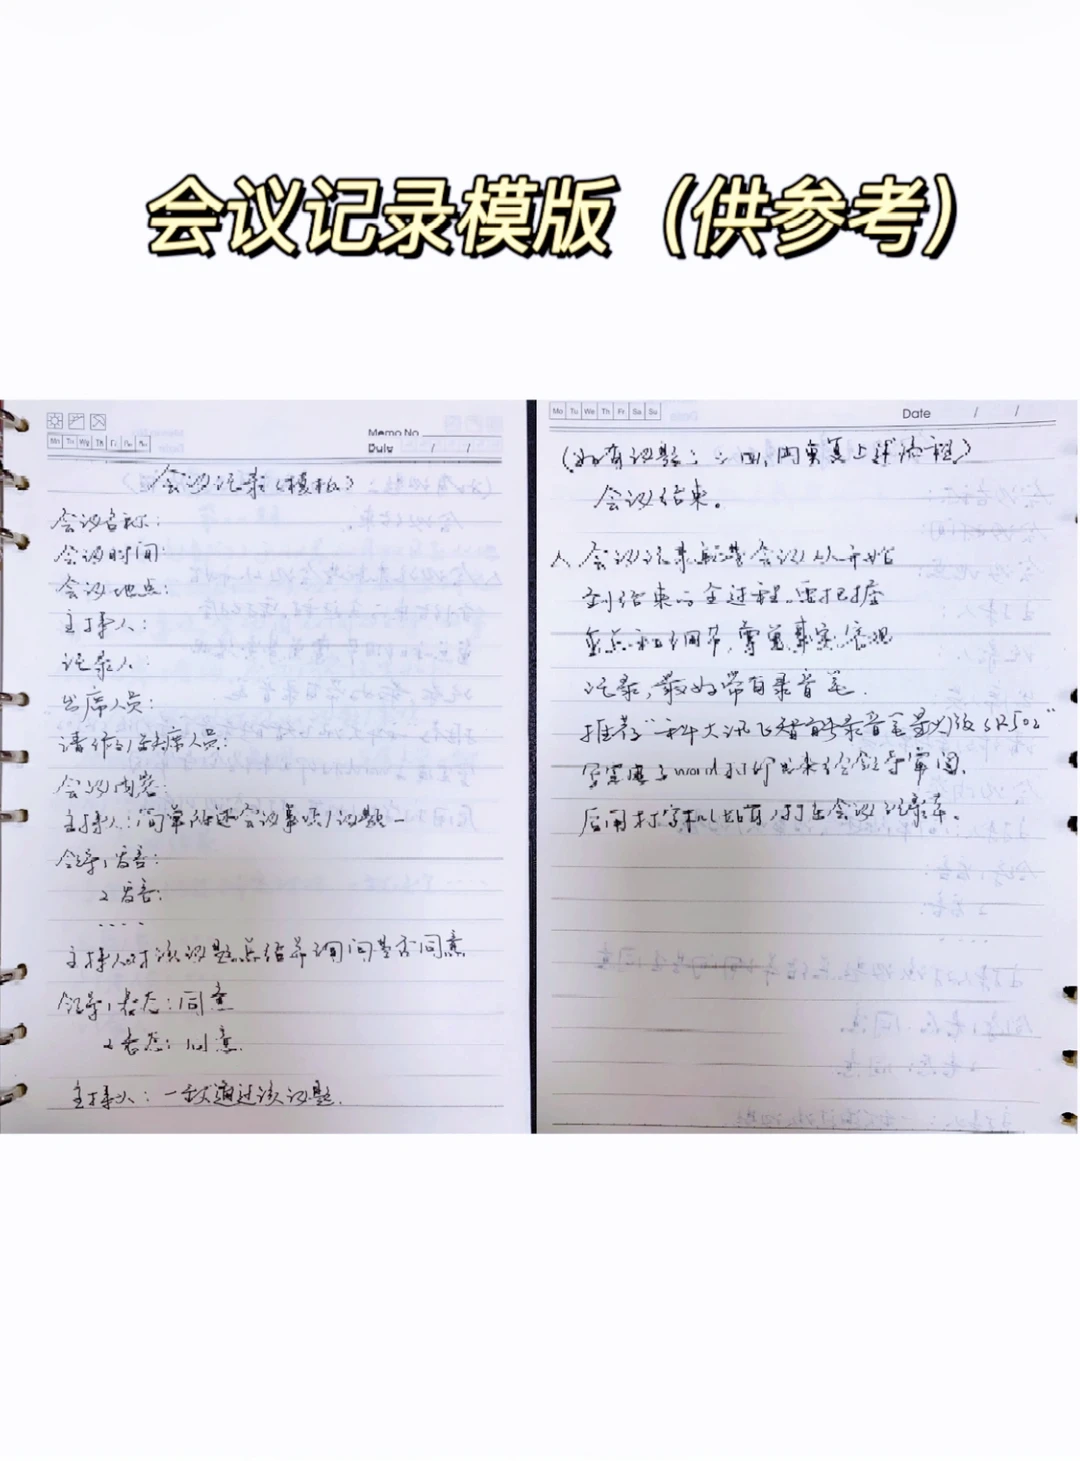 会议记录模版（供参考）
Mo Tu We Th Fr Sa Su
Memo No.
Date / /
会议记录（模板）
会议名称：
会议时间：
会议地点：
主持人：
记录人：
出席人员：
请作的出席人员：
会议内容：
主持人：简单陈述会议事项/议题一
领导1发言：
2发言：
....
主持人对该议题总结并询问是否同意
领导1表态：同意
2表态：同意.
主持人：一致通过该议题.
Mo Tu We Th Fr Sa Su
Date / /
（如有议题二三四，同重复上述流程）
会议结束。
会议记录 是会议从开始
到结束的全过程。要把握
重点和细节，尊重事实，客观
记录，最好带有录音笔.
推荐“科大讯飞智能录音笔 502”
写完 word打印出来给领导审阅.
后用打字机 打在会议记录本。